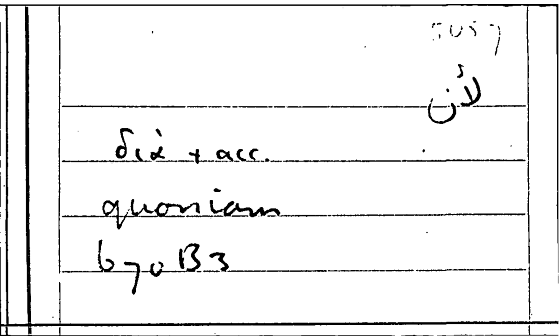 5057
لأن
διὰ + acc.
quoniam
670B3